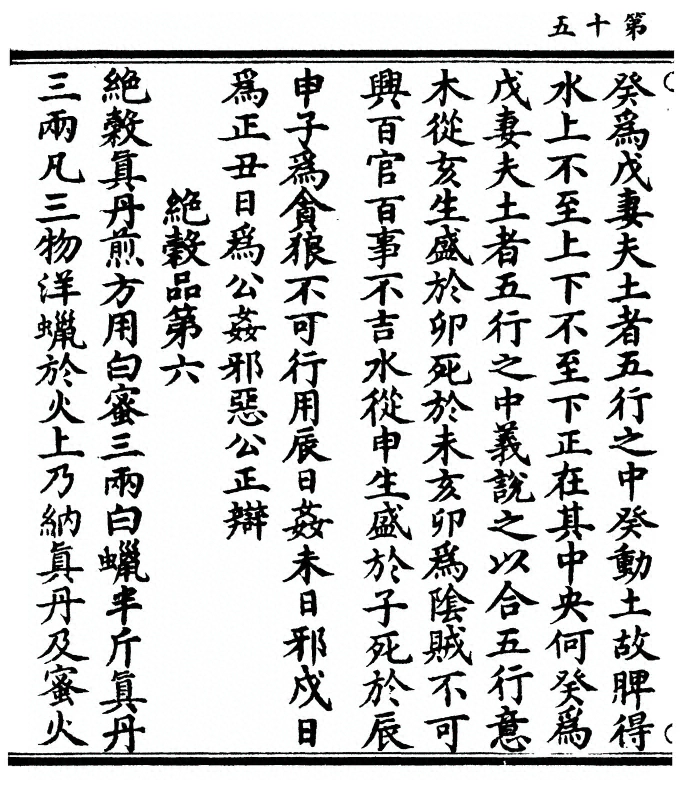 第十五
癸爲戊妻夫土者五行之中癸動土故脾得
水上不至上下不至下正在其中央何癸爲
戊妻夫土者五行之中義說之以合五行意
木從亥生盛於卯死於未亥卯爲陰賊不可
興百官百事不吉水從申生盛於子死於辰
申子爲貪狼不可行用辰日姦未日邪戍日
爲正丑日爲公姦邪惡公正辯
絕穀品第六
絕穀眞丹煎方用白蜜三兩白蠟半斤眞丹
三兩凡三物洋蠟於火上乃納眞丹及蜜火